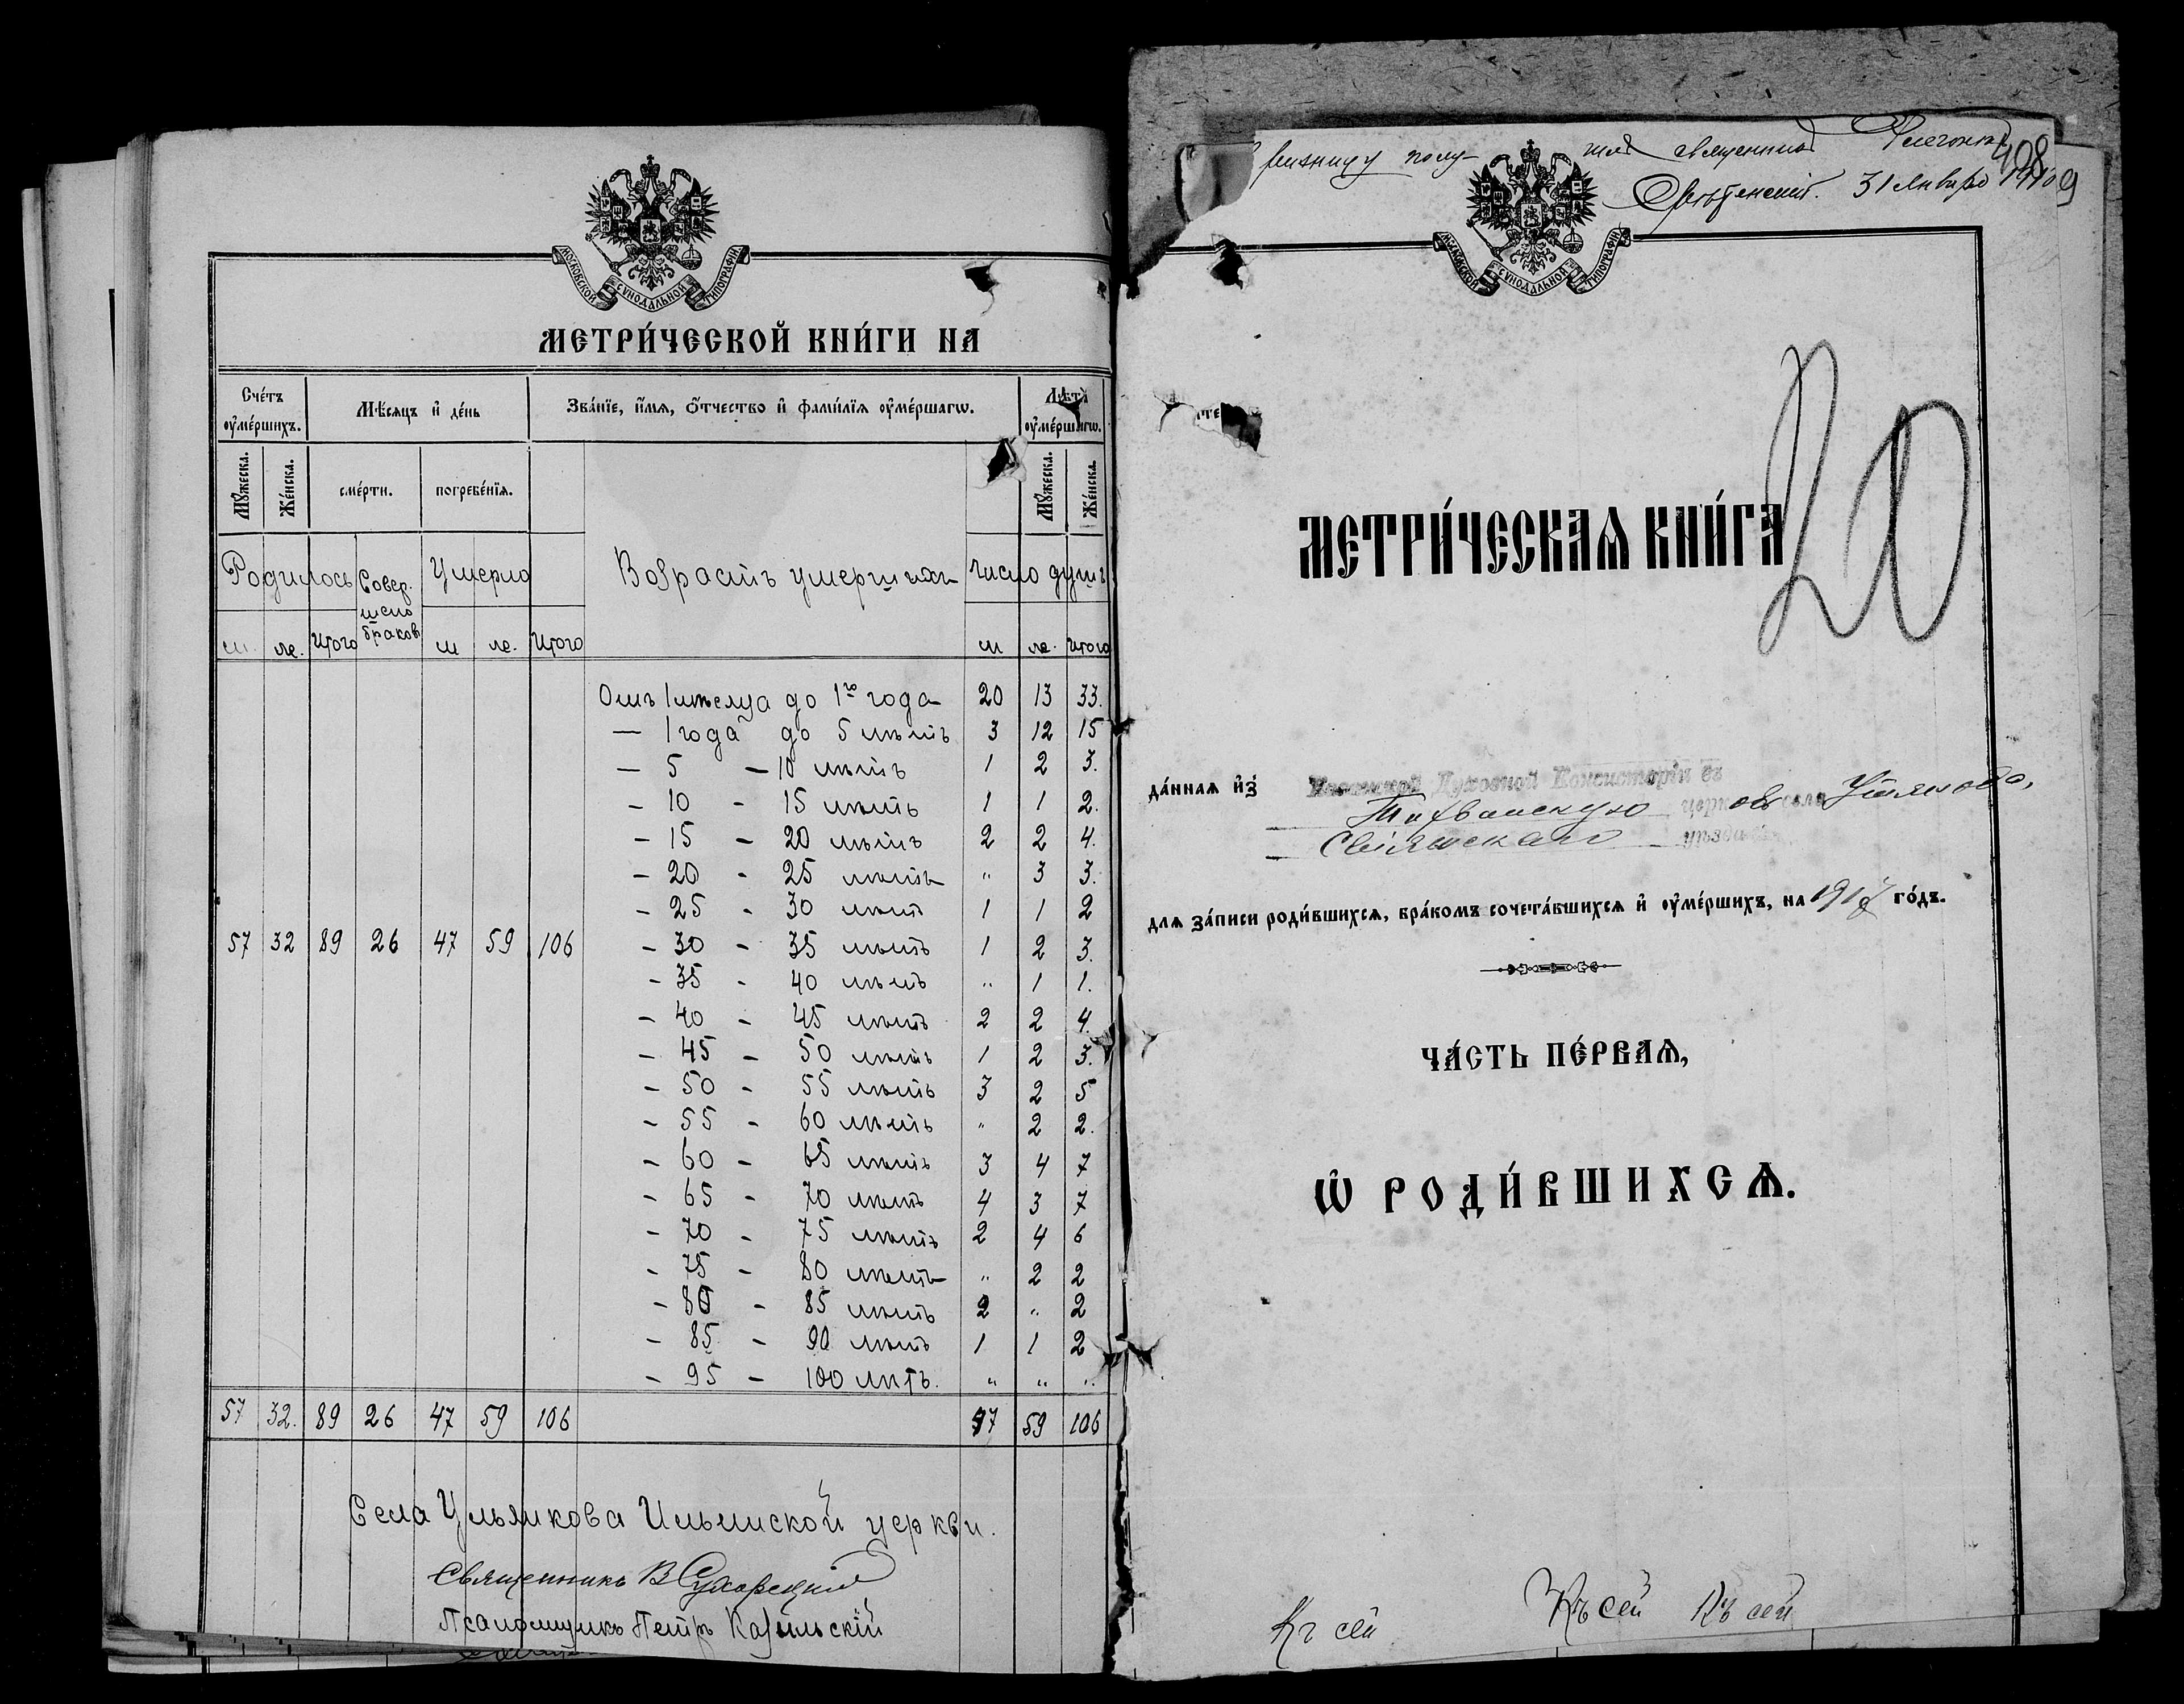 МОСКОВСКОЙ СѴНОДАЛЬНОЙ ТИПОГРАФІИ
МЕТРИ́ЧЕСКОЙ КНИ́ГИ НА
Сче́тъ оу҆ме́ршихъ.
Мѣ́сяцъ и҆ де́нь
Зва́нїе, и҆́мѧ, ѻ҆́тчество и҆ фами́лїѧ оу҆ме́ршагѡ.
Лѣ́та оу҆ме́ршагѡ.
Мꙋ́жеска.
Же́нска.
сме́рти.
погребе́нїѧ.
Мꙋ́жеска.
Же́нска.
Родилось
Совершено браков
Умерло
Возрастъ умершихъ
Число душъ
м. же. Итого м же. Итого м же. Итого
Отъ 1 месяца до 1го года 20 13 33.
— 1 года до 5 лѣтъ 3 12 15
— 5 — 10 лѣтъ 1 2 3.
— 10 - 15 лѣтъ 1 1 2.
— 15 — 20 лѣтъ 2 2 4.
— 20 - 25 лѣтъ " 3 3.
- 25 - 30 лѣтъ 1 1 2
57 32 89 26 47 59 106 - 30 - 35 лѣтъ 1 2 3.
- 35 - 40 лѣтъ " 1 1.
- 40 - 45 лѣтъ 2 2 4.
- 45 - 50 лѣтъ 1 2 3.
- 50 - 55 лѣтъ 3 2 5
- 55 - 60 лѣтъ " 2 2.
- 60 - 65 лѣтъ 3 4 7
- 65 - 70 лѣтъ 4 3 7
- 70 - 75 лѣтъ 2 4 6
- 75 - 80 лѣтъ " 2 2
- 80 - 85 лѣтъ 2 " 2
- 85 - 90 лѣтъ 1 1 2
- 95 - 100 лѣтъ. " " "
57 32. 89 26 47 59 106 47 59 106
Села Ульянкова Ильинской церкви.
Священникъ В
Псаломщикъ Петръ Казыльскій
священник
31 Января
408
МОСКОВСКОЙ СѴНОДАЛЬНОЙ ТИПОГРАФІИ
20
МЕТРИ́ЧЕСКАѦ КНИ́ГА
да́ннаѧ и҆з̾ Казанской Духовной Консисторіи въ
Тихвинскую церковь села Утякова,
Свіяжскаго уѣзда
длѧ за́писи роди́вшихсѧ, бра́комъ сочета́вшихсѧ и҆ оу҆ме́ршихъ, на го́дъ.
ЧА́СТЬ ПЕ́РВАѦ,
Ѽ РОДИ́ВШИХСѦ.
Къ сей Къ сей Къ сей